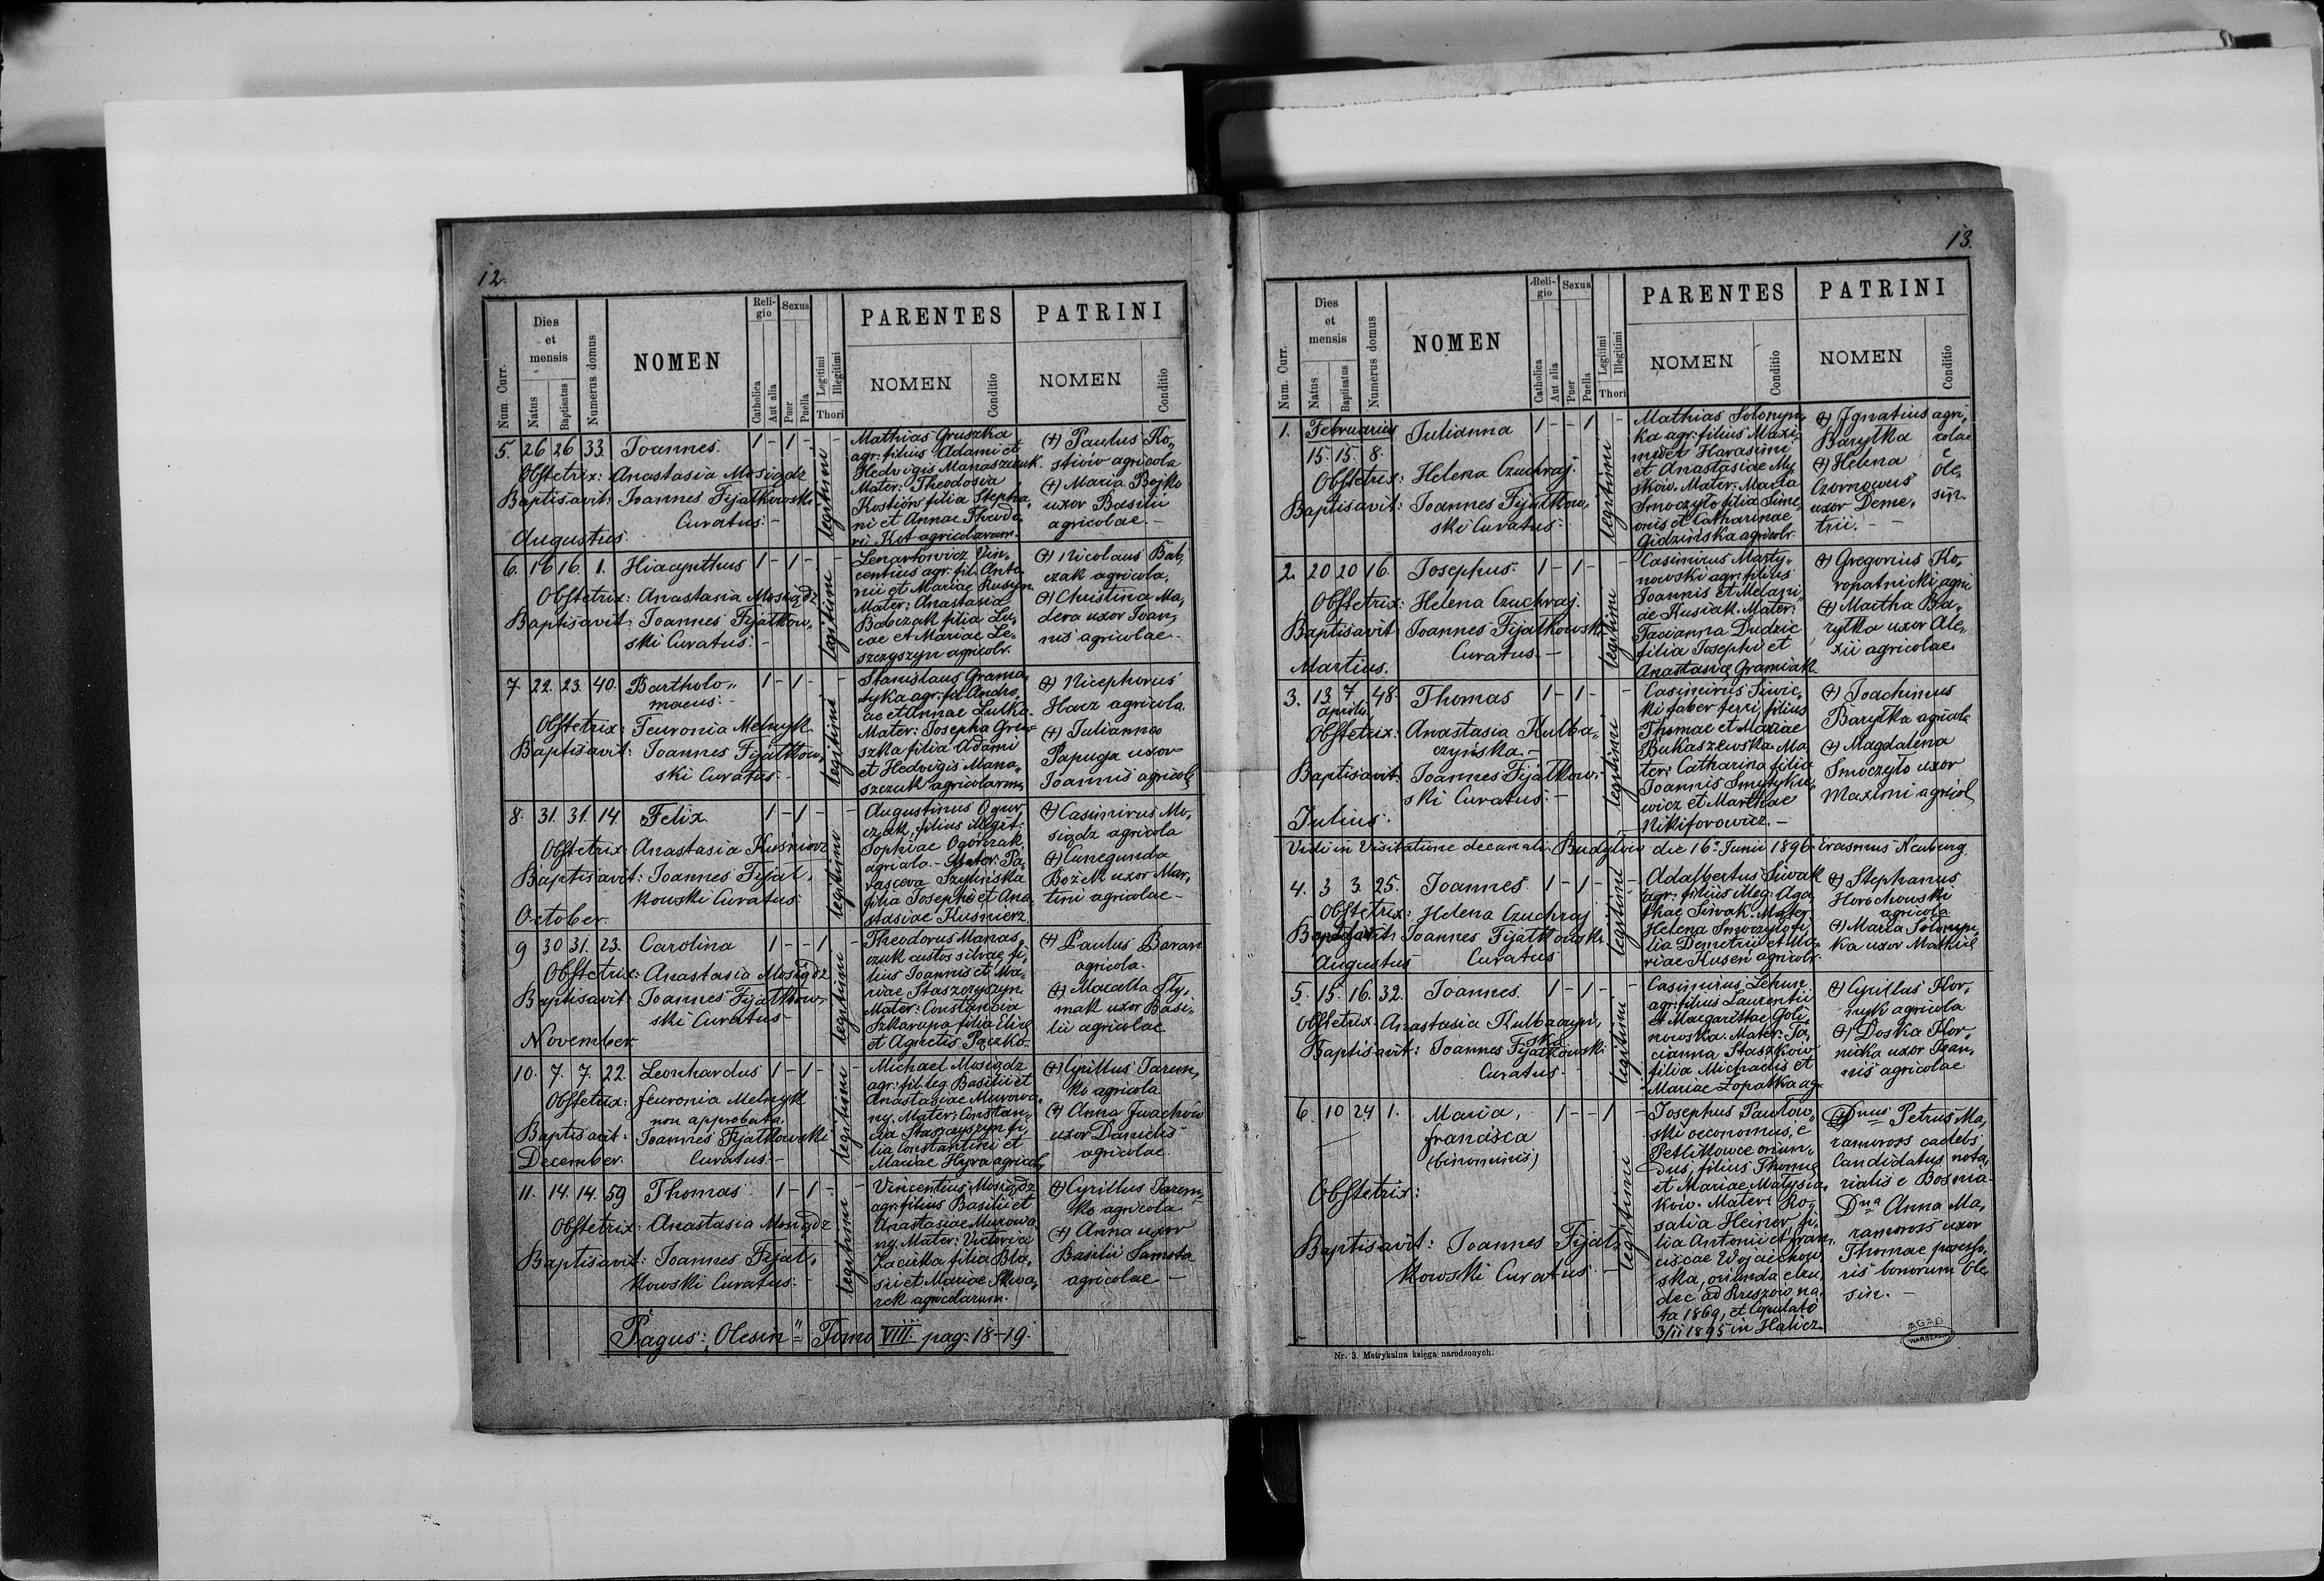 12.
Num Curr.
Dies et mensis
Natus
Baptisatus
Numerus domus
NOMEN
Reli-gio
Catholica
Aut alia
Sexus
Puer
Puella
Legitimi
Illegitimi
Thori
PARENTES
NOMEN
Conditio
PATRINI
NOMEN
Conditio
5. 26 26 33. Joannes. 1 - 1 - -
Obstetrix: Anastasia Mosiądz
Baptisavit: Joannes Fijałkowski
Curatus: -
legitimi
Mathias Gruszka
agr: filius Adami et
Hedvigis Manaszczuk.
Mater: Theodosia
Kostiów filia Stepha„
ni et Annae Theodo„
ri Kot agricolarum.
(+) Paulus Ko„
stiów agricola
(+) Maria Bojko
uxor Basilii
agricolae. -
Augustus.
6. 16 16. 1. Hiacynthus 1 - 1 - -
Obstetrix: Anastasia Mosiądz
Baptisavit: Joannes Fijałkow„
ski Curatus: -
legitimi
Lenartowicz Vin„
centius agr: fil. Anto
nii et Mariae Rusyn.
Mater: Anastasia
Babczak filia Lu„
cae et Mariae Le„
szczyszyn agricolr.
(+) Nicolaus Bab„
czak agricola,
(+) Christina Ma„
dera uxor Joan„
nis agricolae. -
7. 22. 23. 40. Bartholo„ 1 - 1 - -
maeus: -
Obstetrix: Feuronia Melnyk
Baptisavit: Joannes Fijałkow„
ski Curatus: -
legitimi
Stanislaus Grama„
tyka agr: fil. Andre„
ae et Annae Lutka.
Mater: Josepha Gru„
szka filia Adami
et Hedvigis Mana„
szczuk agricolarum
(+) Nicephorus
Hacz agricola.
(+) Julianna
Papuga uxor
Joannis agricolę
8. 31. 31. 14. Felix 1 - 1 - -
Obstetrix: Anastasia Kuśnierz
Baptisavit: Joannes Fijał„
kowski Curatus:
legitimi
Augustinus Ogur„
czak, filius illegit:
Sophiae Ogórczak,
agricola. - Mater: Pa„
rasceva Szylińska
filia Josephi et Ana„
stasiae Kuśnierz
(+) Casimirus Mo„
siądz agricola
(+) Cunegunda
Bożek uxor Mar„
tini agricolae -
October.
9 30 31. 23. Carolina 1 - - 1. -
Obstetrix: Anastasia Mosiądz
Baptisavit: Joannes Fijałkow„
ski Curatus -
legitimi
Theodorus Manas„
czuk custos silvae fi„
lius Joannis et Ma„
riae Staszczyszyn.
Mater: Constancia
Szkarupa filia Elię
et Agnetis Pączko.
(+) Paulus Baran
agricola.
(+) Marcella Sty„
mak uxor Basi„
lii agricolae
November.
10. 7. 7. 22. Leonhardus 1 - 1 - -
Obstetrix: Feuronia Melnyk
non approbata.
Baptisavit: Joannes Fijałkowski
Curatus: -
legitimi
Michael Mosiądz
agr: fil. leg. Basilii et
Anastasiae Murowa„
ny. Mater: Constan„
cia Staszczyszyn fi„
lia Constantini et
Mariae Hyra agricol„
(+) Cyrillus Jarem„
ko agricola
(+) Anna Iwachów
uxor Danielis
agricolae.
December.
11. 14. 14. 59 Thomas. 1 - 1 - -
Obstetrix: Anastasia Mosiądz
Baptisavit: Joannes Fijał„
kowski Curatus: -
legitimi
Vincentius Mosiądz
agr: filius Basilii et
Anastasiae Murowa„
ny. Mater: Victoria
Zacirka filia Bla„
sii et Mariae Skwa„
rek agricolarum.
(+) Cyrillus Jarem„
ko agricola
(+) Anna uxor
Basilii Samota
agricolae -
Pagus: „Olesin" Tomo VIII. pag: 18-19.
13.
Num. Curr.
Dies et mensis
Natus
Baptisatus
Numerus domus
NOMEN
Reli-gio
Catholica
Aut alia
Sexus
Puer
Puella
Legitimi
Illegitimi
Thori
PARENTES
NOMEN
Conditio
PATRINI
NOMEN
Conditio
1. Februarius Julianna 1 - - 1 -
15. 15. 8.
Obstetrix: Helena Czuchraj.
Baptisavit: Joannes Fijałkow„
ski Curatus: -
legitimi
Mathias Solonyn„
ka agr: filius Maxi„
mi et Harasimi
et Anastasiae My„
sków. Mater: Maria
Smoczyło filia Sime„
onis et Catharinae
Gidzińska agricolr.
(+) Ignatius agri„
Baryłka colae
(+) Helena e
Czornowus Ole„
uxor Deme„ sin.
trii. - -
2. 20 20 16. Josephus. 1 - 1 - -
Obstetrix: Helena Czuchraj.
Baptisavit Joannes Fijałkowski
Curatus. -
legitimi
Casimirus Marty„
nowski agr: filius
Joannis et Melani„
ae Rusiak. Mater:
Tacianna Dudzic
filia Josephi et
Anastasię Gramiak.
(+) Gregorius Ko„
ropatnicki agri
(+) Martha Ba„
ryłka uxor Ale„
xii agricolae.
Martius.
3. 13. 7. 48. Thomas 1 - 1 - -
Aprilis
Obstetrix: Anastasia Kulba„
czyńska. -
Baptisavit: Joannes Fijałkow„
ski Curatus: -
legitimi
Casimirus Siwic„
ki faber ferri, filius
Thomae et Mariae
Bukaszewska. Ma„
ter: Catharina filia
Joannis Smytykie„
wicz et Marthae
Nikiforowicz. -
(+) Joachimus
Baryłka agricola
(+) Magdalena
Smoczyło uxor
Maximi agricol
Julius.
Vidi in Visitatione decanali Budyłów die 16. Junii 1896. Erasmus Neuburg.
4. 3 3. 25. Joannes. 1 - 1 - -
Obstetrix: Helena Czuchraj
Baptisavit: Joannes Fijałkowski
Curatus
legitimi
Adalbertus Siwak
agr: filius illeg: Aga„
thae Siwak. Mater:
Helena Smoczyło fi„
lia Demetrii et Ma„
riae Kusen agricolr.
(+) Stephanus
Horochowski
agricola
(+) Maria Solonyn„
ka uxor Mathię
Augustus
5. 15. 16. 32. Joannes. 1 - 1 - -
Obstetrix: Anastasia Kulbaczyń„
ska
Baptisavit: Joannes Fijałkowski
Curatus. -
legitimi
Casimirus Lehun
agr: filius Laurentii
et Margarithae Goli
nowska. Mater: Ta„
cianna Staszków
filia Michaelis et
Mariae Łopatka ag.
(+) Cyrillus Kor„
nyk agricola
(+) Doska Kor„
nicka uxor Joan„
nis agricolae
6. 10 24 1. Maria, 1 - - 1 -
Francisca
(binominis)
Obstetrix:
Baptisavit: Joannes Fijał„
kowski Curatus: -
legitimi
Josephus Pawłow„
ski oeconomus, e
Petlikowce oriun„
dus, filius Thomę
et Mariae Matysia„
ków. Mater: Ro„
salia Heiner fi„
lia Antonii et Fran„
ciscae Wojciechow„
ska, oriunda e Ru„
dec ad Rzeszów, na„
ta 1869, et copulata
3/II 1895 in Halicz.
(+) Dnus Petrus Ma„
ramoross caelebs
Candidatus nota„
rialis e Bosnia.
Dna Anna Ma„
ramoross uxor
Thomae possesso„
ris bonorum Ole„
sin. -
Nr. 3. Metrykalna księga narodzonych.
AGAD
WARSZAWA